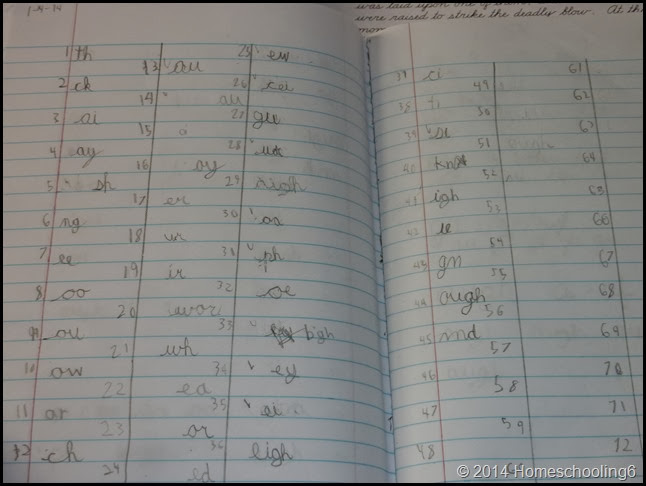 1-9-14
was laid upon one of them.
were raised to strike the deadly blow. At th
mom
1 th
2 ck
3 ai
4 ay
5 sh
6 ng
7 ee
8 oo
9 ou
10 ow
11 ar
12 ch
13 au
14 au
15
16 oy
17 er
18 ur
19 ir
20 wor
21 wh
22 ea
23 or
24 ed
25 ew
26 cei
27 gu
28
29
30 oa
31 ph
32 oe
33 bigh
34 ey
35 ei
36 eigh
37 ci
38 ti
39 si
40 kn
41 igh
42 ie
43 gn
44 ough
45
46
47
48
49
50
51
52
53
54
55
56
57
58
59
61
62
63
64
65
66
67
68
69
70
71
72
© 2014 Homeschooling6